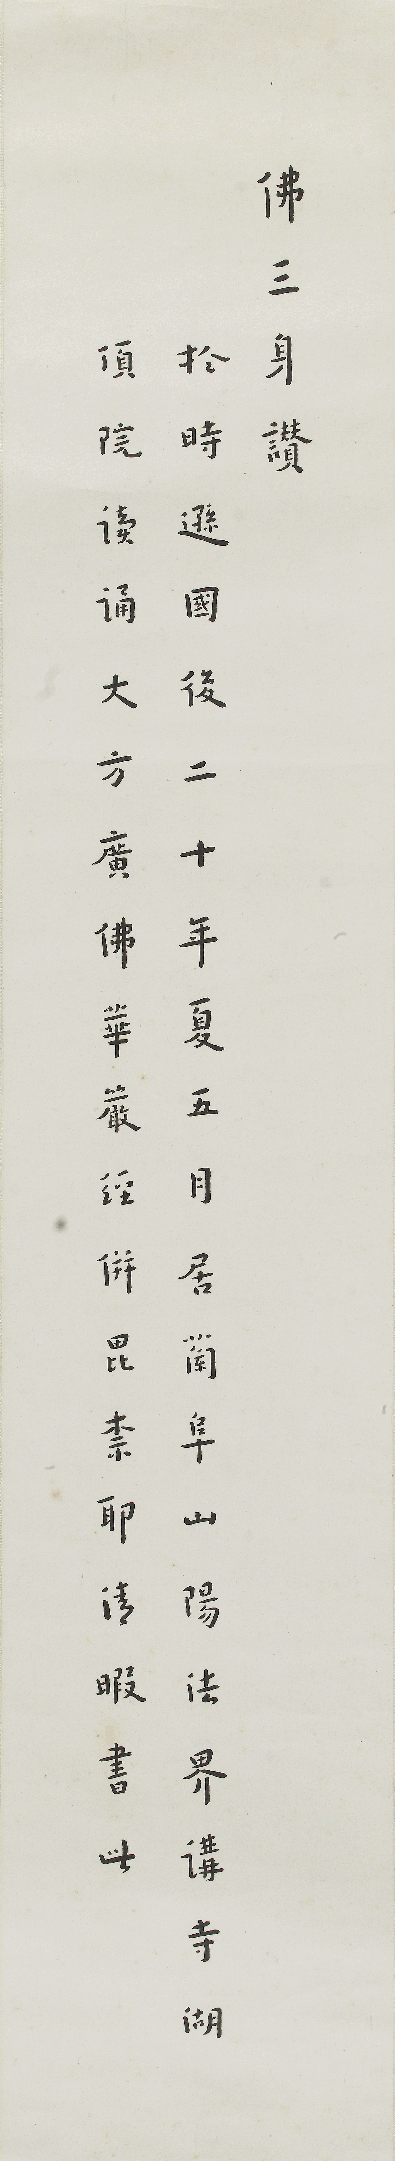 佛三身讃
於時遜國後二十年夏五月居蘭阜山陽法界講寺湖
頂院讀誦大方廣佛華嚴經併毘柰耶清暇書此